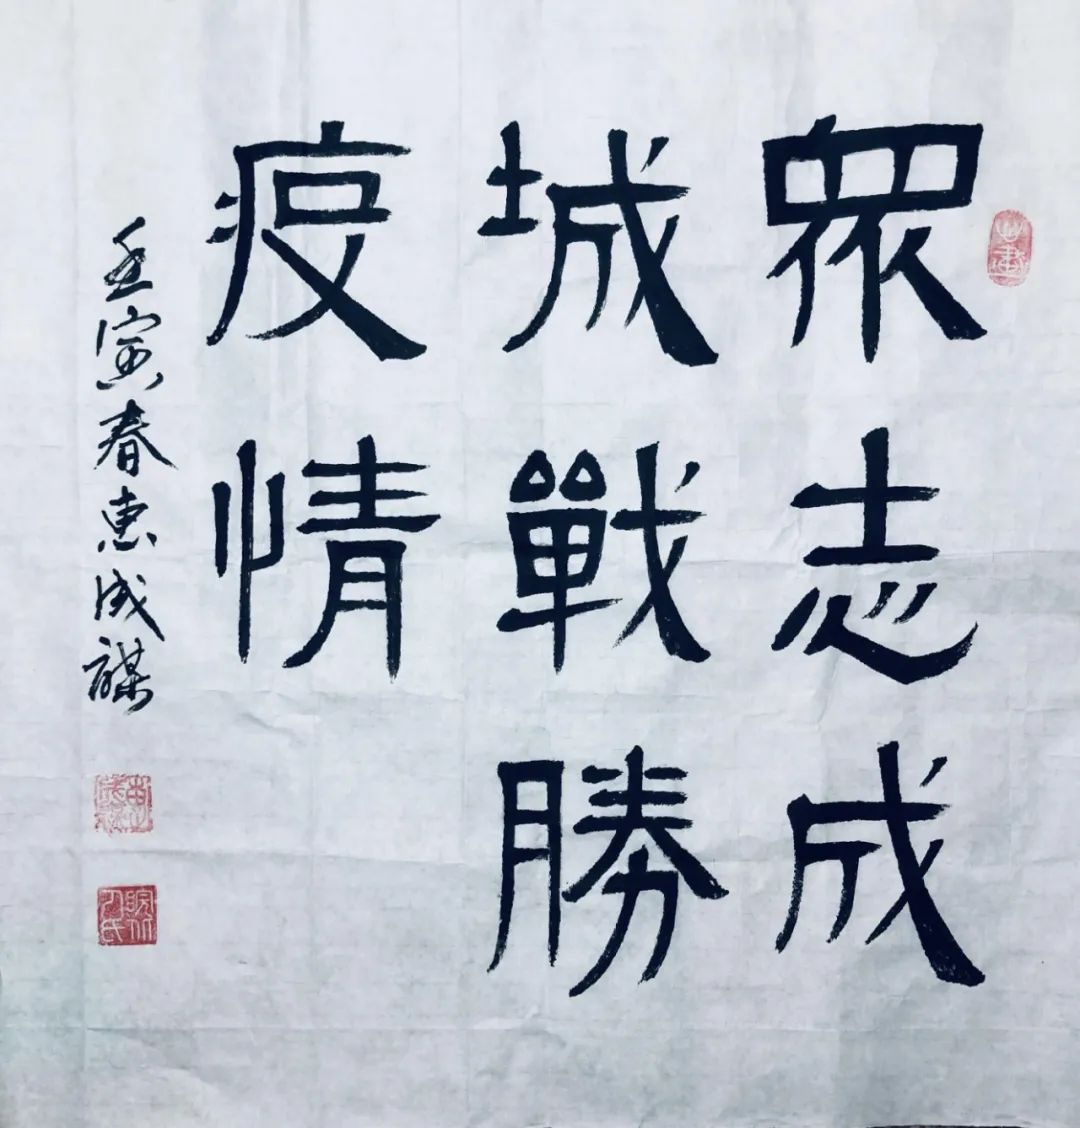 眾志成
城戰勝
疫情
壬寅春惠成謀